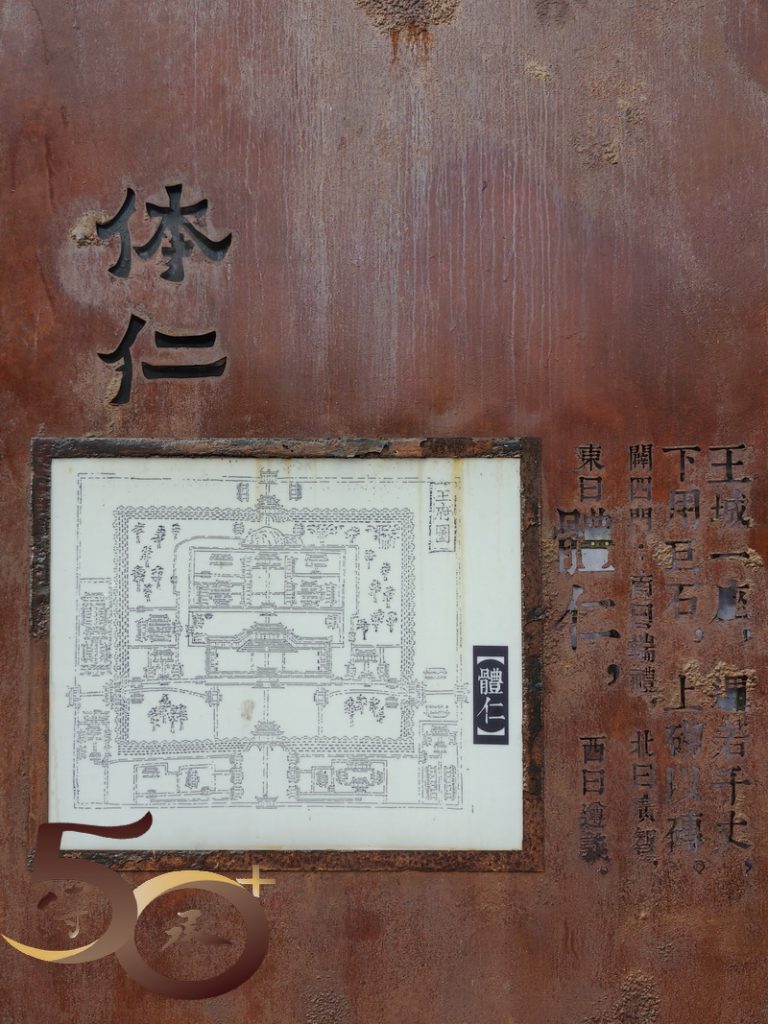 体仁
王府圖
【體仁】
王城一座，周若干丈，
下用巨石，上砌以磚。
闢四門：南曰端禮，北曰廣智，
東曰體仁，西曰遵義。
50+